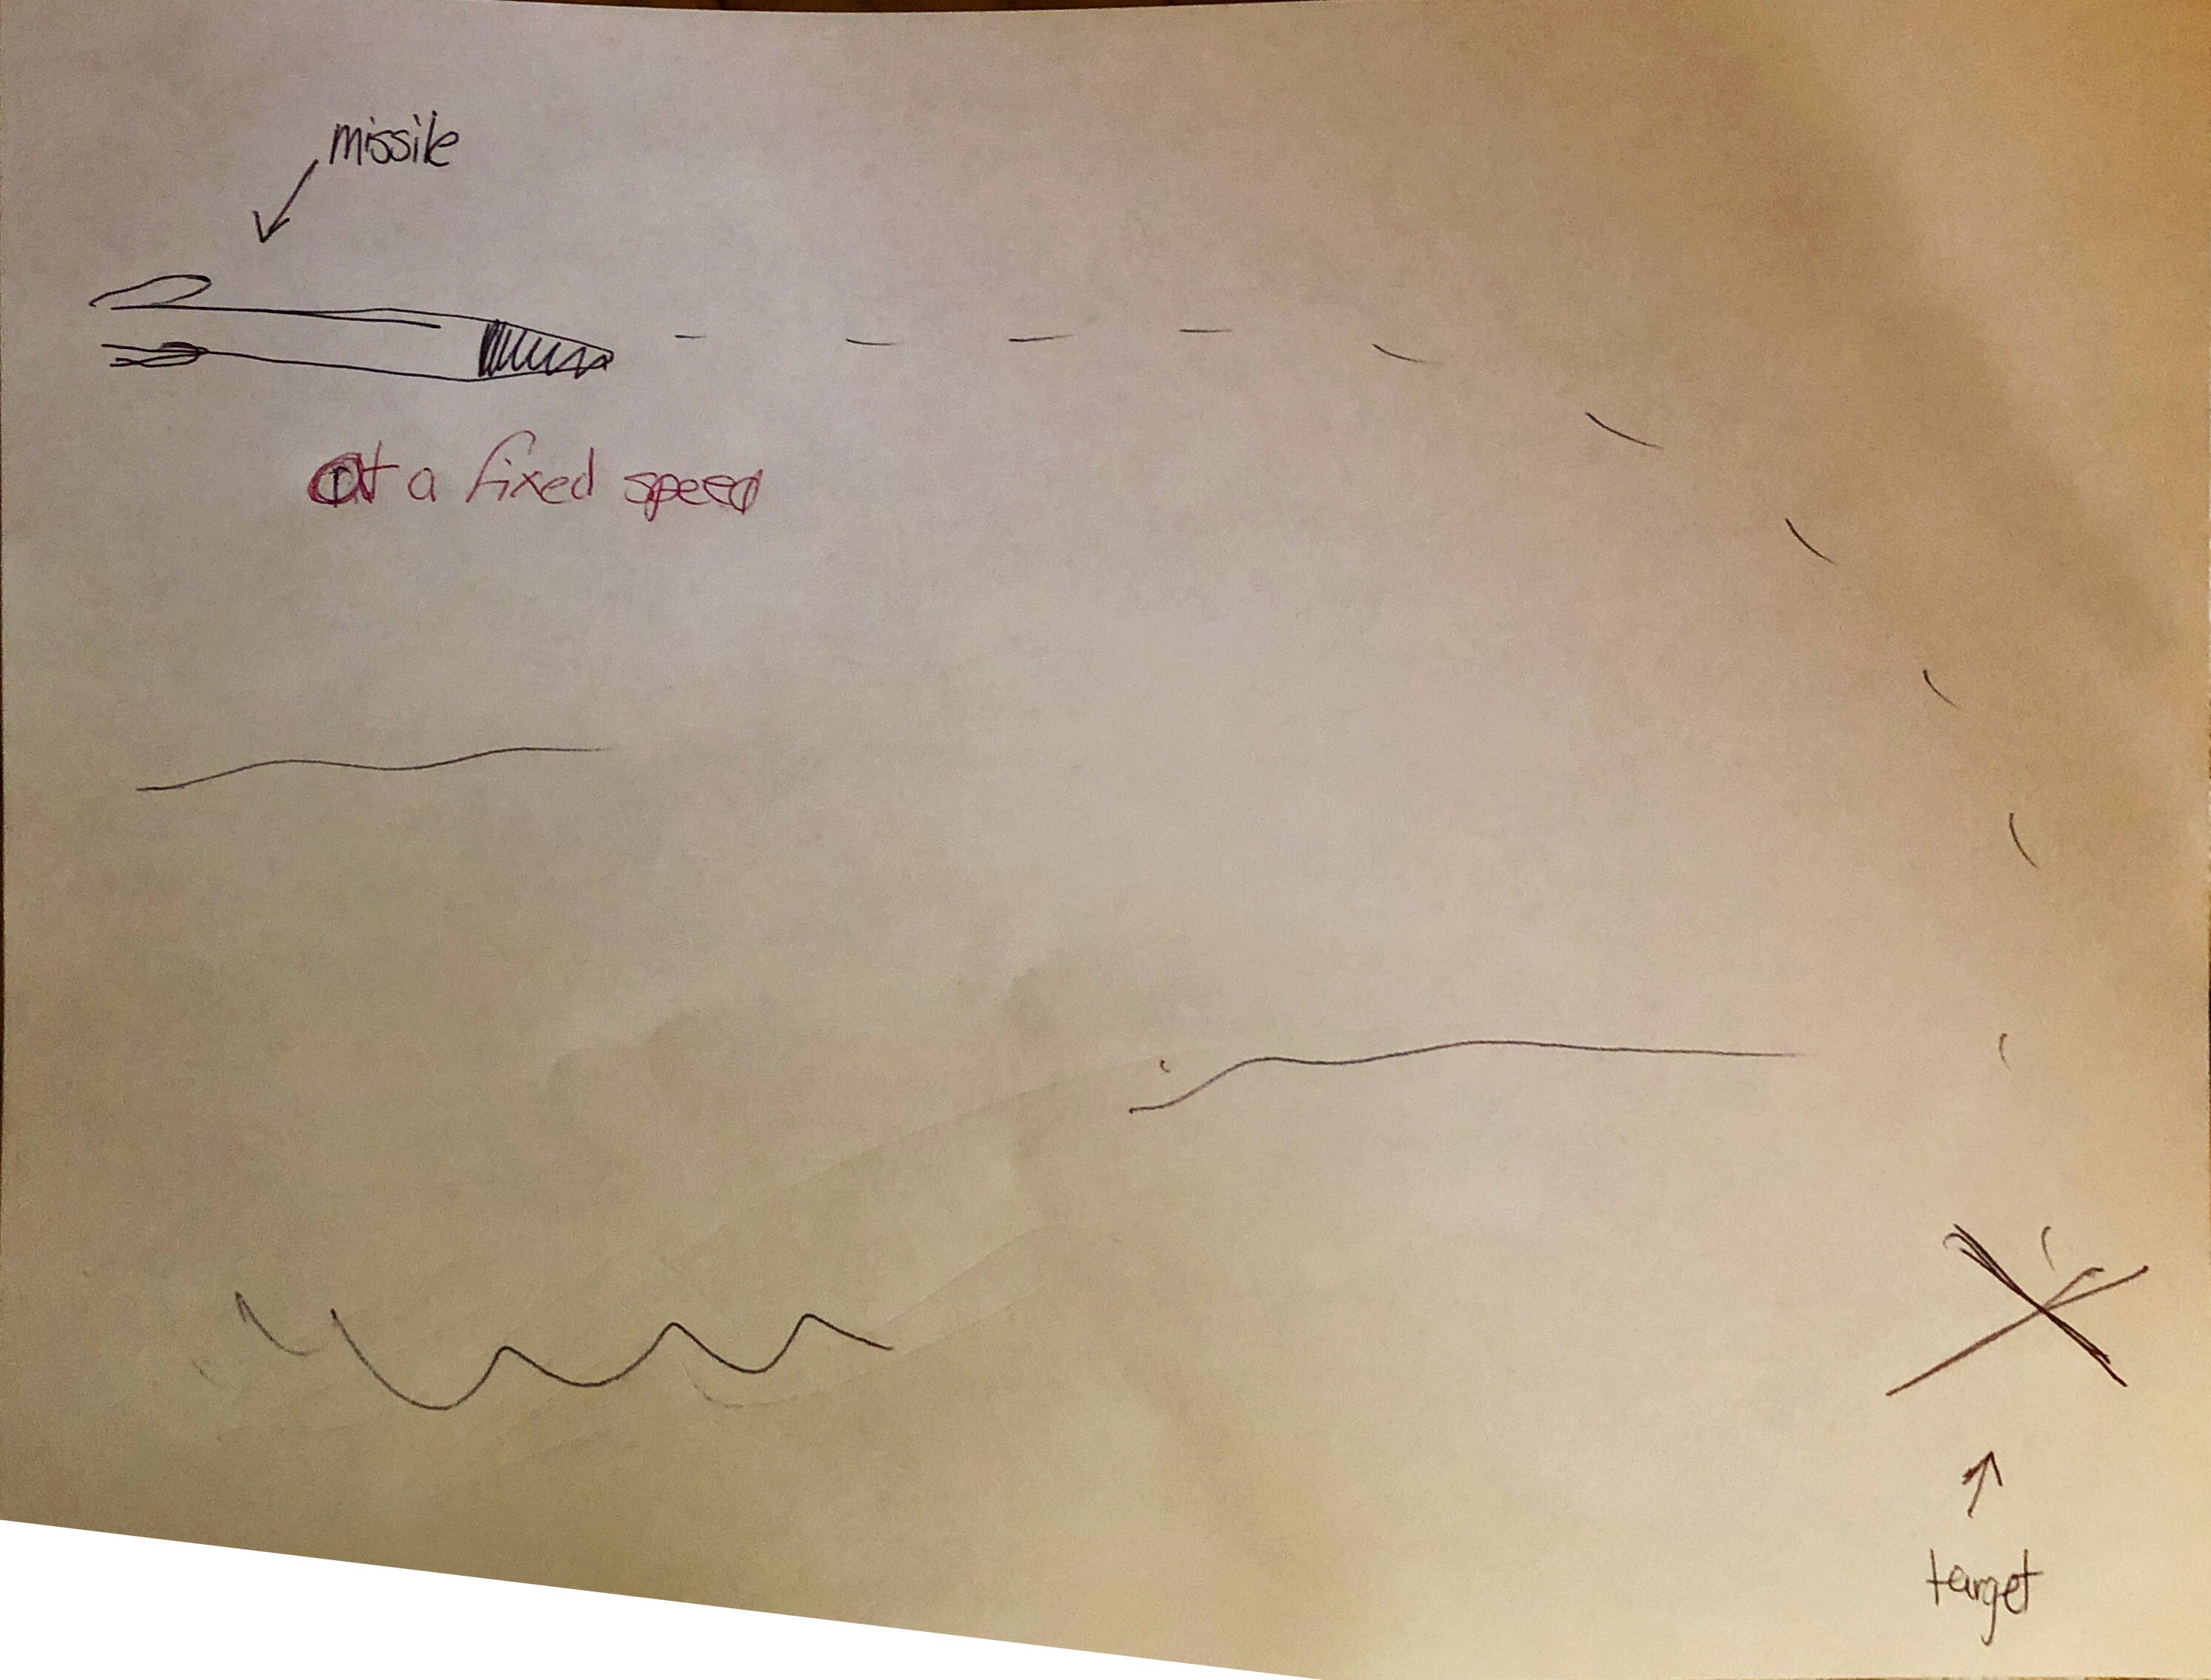 missile
at a fixed speed
target